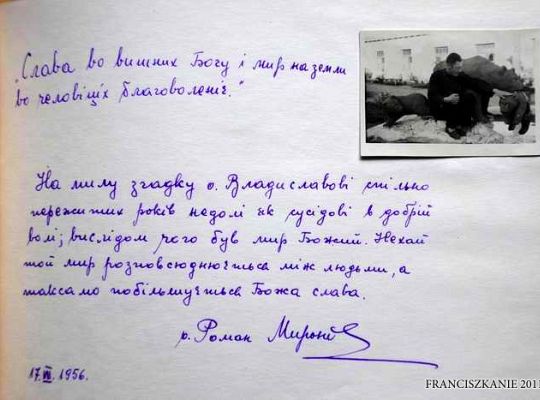 „Слава во вишних Богу і мир на земли
во человіціх благоволеніє."
На милу згадку о. Владиславові спільно
пережитих років недолі як сусідові в добрій
волі; вислідом чого був мир Божий. Нехай
той мир розповсюднюється між людьми, а
таксамо побільшується Божа слава.
о. Роман
17. 1956.
FRANCISZKANIE 201